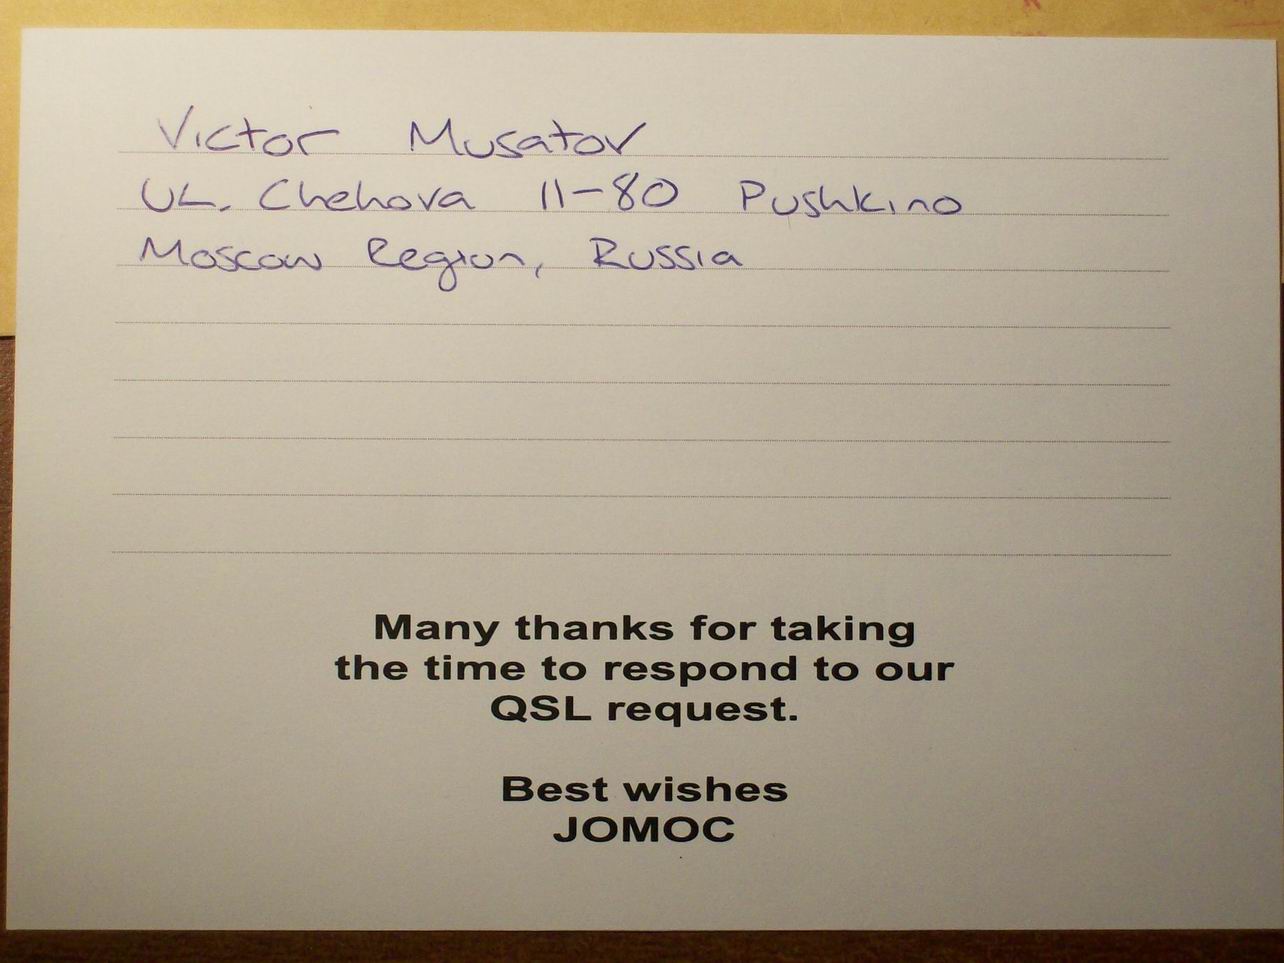 Victor Musatov
UL. Chehova 11-80 Pushkino
Moscow Region, Russia
Many thanks for taking
the time to respond to our
QSL request.
Best wishes
JOMOC